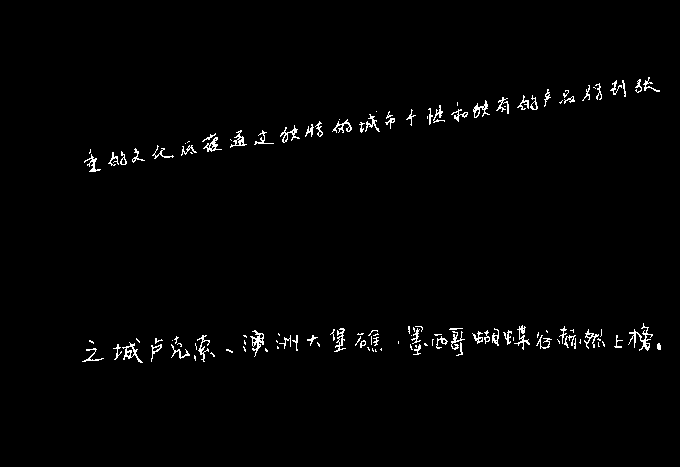 重的文化底蕴通过独特的城市个性和独有的产品得到张
之城卢克索、澳洲大堡礁、墨西哥蝴蝶谷赫然上榜。